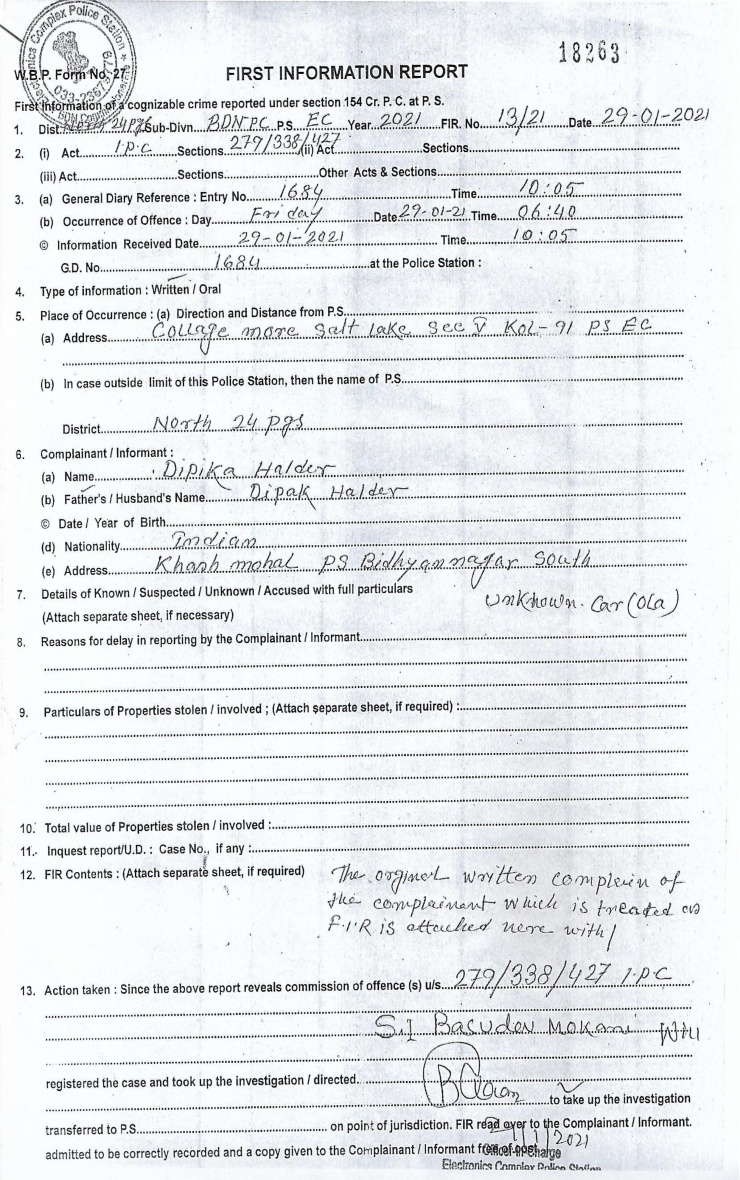 Electronics Complex Police Station
18263
W.B.P. Form No. 27
FIRST INFORMATION REPORT
First Information of a cognizable crime reported under section 154 Cr. P. C. at P. S.
1. Dist. North 24 Pgs Sub-Divn. BDNPC P.S. EC Year 2021 FIR. No. 13/21 Date 29-01-2021
2. (i) Act I.P.C Sections 279/338/427 (ii) Act Sections
(iii) Act Sections Other Acts & Sections
3. (a) General Diary Reference : Entry No. 1684 Time 10:05
(b) Occurrence of Offence : Day Friday Date 29-01-21 Time 06:40
© Information Received Date 29-01-2021 Time 10:05
G.D. No. 1684 at the Police Station :
4. Type of information : Written / Oral
5. Place of Occurrence : (a) Direction and Distance from P.S.
(a) Address Collage more Salt Lake Sec V Kol-91 PS EC
(b) In case outside limit of this Police Station, then the name of P.S.
District North 24 pgs
6. Complainant / Informant :
(a) Name Dipika Halder
(b) Father's / Husband's Name Dipak Halder
© Date / Year of Birth
(d) Nationality Indian
(e) Address Khash mohal PS Bidhyannagar South
7. Details of Known / Suspected / Unknown / Accused with full particulars
Unknown. Car (Ola)
(Attach separate sheet, if necessary)
8. Reasons for delay in reporting by the Complainant / Informant
9. Particulars of Properties stolen / involved ; (Attach separate sheet, if required) :
10. Total value of Properties stolen / involved :
11. Inquest report/U.D. : Case No., if any :
12. FIR Contents : (Attach separate sheet, if required) The orginel written complein of
the complainant which is treated as
F.I.R is attached here with/
13. Action taken : Since the above report reveals commission of offence (s) u/s. 279/338/427 I.P.C
S.I Basudev Mokani
registered the case and took up the investigation / directed.
to take up the investigation
transferred to P.S. on point of jurisdiction. FIR read over to the Complainant / Informant.
admitted to be correctly recorded and a copy given to the Complainant / Informant free of cost
2021
Officer-in-Charge
Electronics Complex Police Station